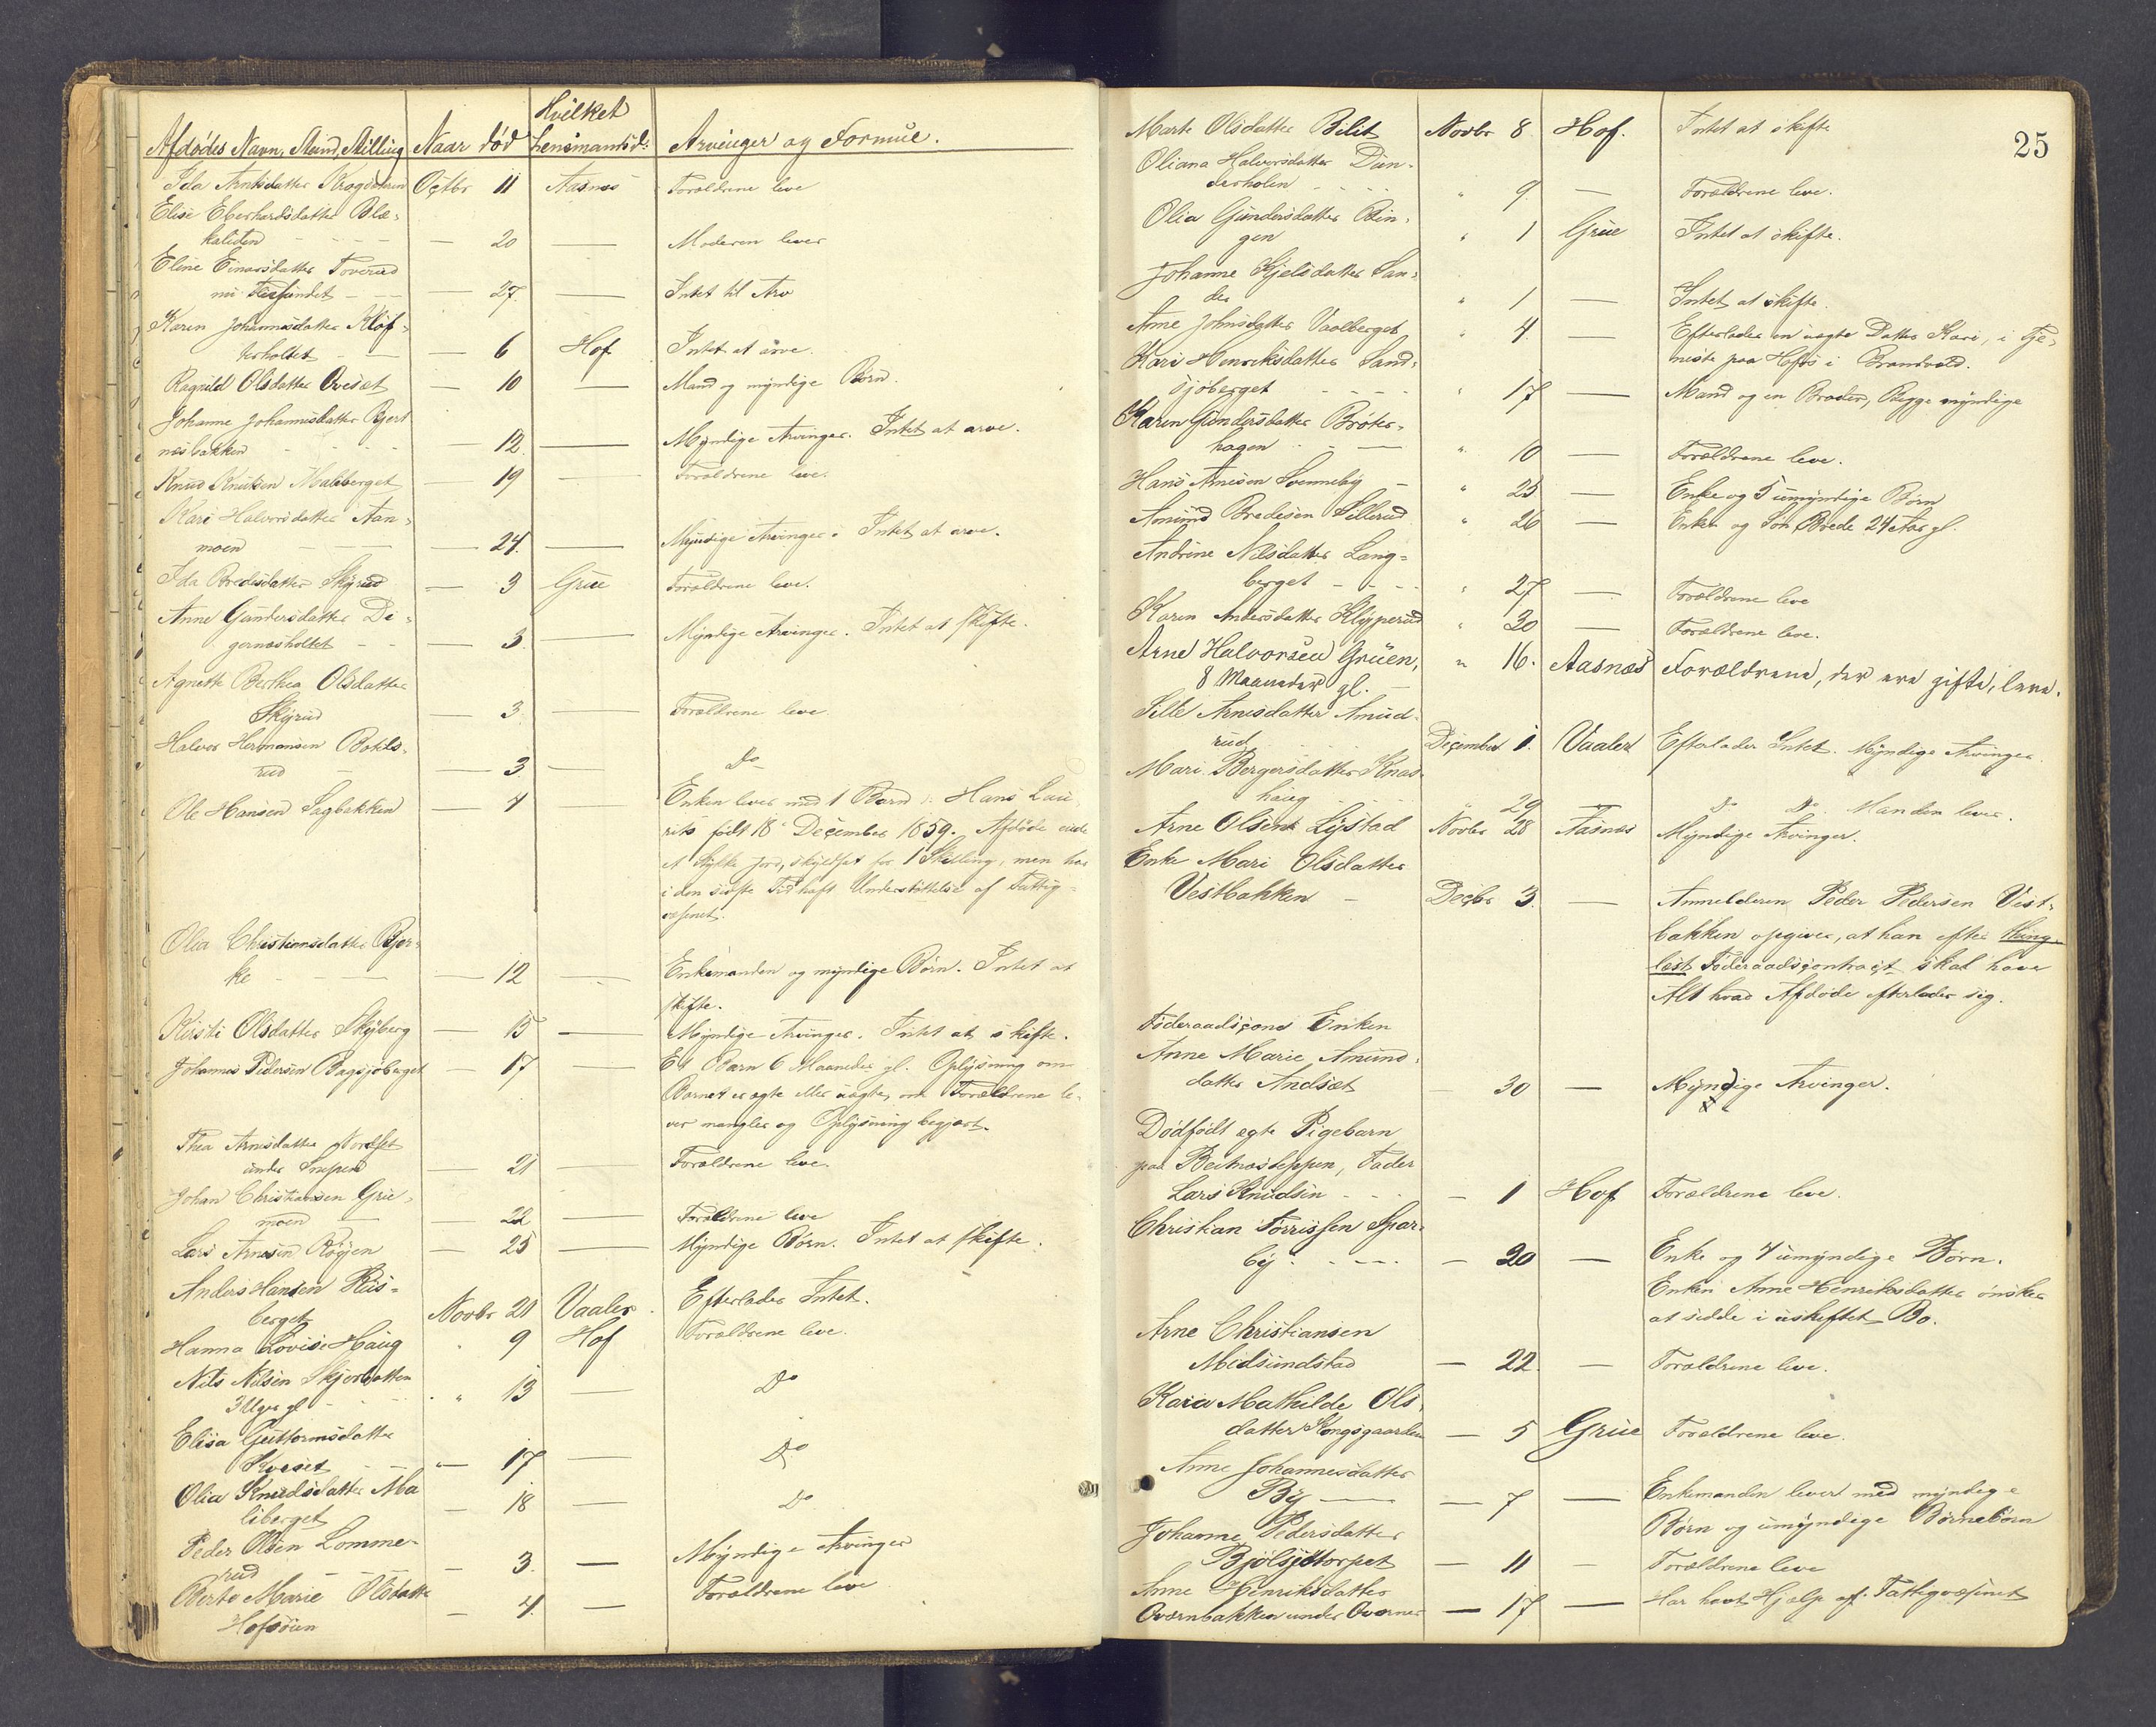 Hvilket
Afdødes Navn, Maand, Stilling Naar død Lensmandsd: Arvinger og Formue.
Ida Arntsdatter Octbr 11 Aasnæs Forældrene leve
Elise Eberhardsdatter Blæ-
kaliden — 20 — Moderen lever
Eline Einarsdatter Toverud
nu — 27 — Intet til Arv
Karen Johannesdatter Kløf-
terholtet — 6 Hof Intet at arve.
Ragnild Olsdatter Oveset — 10 — Mand og myndige Børn.
Johanne Johannesdatter Bjert
næsbakken — 12 — Myndige Arvinger. Intet at arve.
Knud Knutsen Malberget — 19 — Forældrene leve.
Kari Halvorsdatter Aan-
moen — 24. — Myndige Arvinger. Intet at arve.
Ida Bredesdatter Skyrud — 3 Grue Forældrene leve.
Anne Gundersdatter Di-
gernæsholtet — 3. — Myndige Arvinger. Intet at skifte.
Agnette Berthea Olsdatter
Skyrud — 3 — Forældrene leve.
Halvor Hermansen Bokls-
rud — 3 — Do
Ole Hansen Sagbakken — 4 — Enken lever med 1 Barn: Hans Lau
rits født 18 December 1859. Afdøde eiede
et Stykke Jord, skyldsat for 1 Skilling, men har
i den sidste Tid haft Understøttelse af Fattig-
væsenet.
Olea Christiansdatter Bjer-
ke — 12 — Enkemanden og myndige Børn. Intet at
skifte.
Kirsti Olsdatter Skyberg — 15 — Myndige Arvinger. Intet at skifte.
Johannes Pedersen Bagsjøberget — 17 — Et Barn 6 Maaneder gl. Oplysning om
Barnet er ægte eller uægte, om Forældrene le-
ver mangler og Oplysning begjært.
Thea Arnesdatter Nordset
under — 21 — Forældrene leve.
Johan Christiansen Grue-
moen — 22 — Forældrene leve
Lars Arnesen Røgen — 25 — Myndige Børn. Intet at skifte.
Anders Hansen Riis-
berget Novbr 21 Vaaler Efterlader Intet.
Hanna Lovise Haug " 9 Hof Forældrene leve.
Nils Nilsen Skjerbatten
3 Uger gl " 13 — Do
Elisa Guttormsdatter
Kveset — 17 — Do
Olia Knudsdatter Ma
liberget — 18 — Do
Peder Olsen Lomme-
rud — 3. — Myndige Arvinger
Berte Marie Olsdatter — 4. — Forældrene leve
Hofsøien
25
Marte Olsdatter Bilit Novbr 8 Hof. Intet at skifte
Oliana Halvorsdatter Dun-
derholen " 9 — Forældrene leve.
Olia Gundersdatter Rin-
gen " 1 Grue Intet at skifte.
Johanne Kjelsdatter San-
der " 1 — Intet at skifte.
Anne Johnsdatter Vaalberget " 4. — Efterlader en uægte Datter Kari, i Tje-
neste paa Hofos i Brandvold.
Kari Henriksdatter Sand-
sjøberget " 17 — Mand og en Broder, Begge myndige
Karen Gundersdatter Brøter-
hagen " 10 — Forældrene leve.
Hans Arnesen Svenneby " 25 — Enke og 5 umyndige Børn
Amund Bredesen Lillerud " 26 — Enke og Søn Brede 24 Aar gl.
Andrine Nilsdatter Lang-
berget " 27 — Forældrene leve
Karen Andersdatter Klyperud " 30 — Forældrene leve.
Arne Halvorsen Gruen, " 16. Aasnæs Forældrene, der ere gifte, leve.
8 Maaneder gl.
Sille Arnesdatter Amud-
rud December 1. Vaaler Efterlader Intet. Myndige Arvinger
Mari Bergersdatter Knas-
haug " 29 — Do Do. Manden lever.
Arne Olsen Lystad Novbr 28 Aasnæs Myndige Arvinger.
Enke Mari Olsdatter
Vestbakken — Decbr 3. — Anmelderen Peder Pedersen Vest-
bakken opgiver, at han efter thing-
læst Føderaadscontract skal have
Alt hvad Afdøde efterlader sig.
Føderaadscone Enken
Anne Marie Amunds-
datter Andset — 30 — Myndige Arvinger.
Dødfødt ægte Pigebarn
paa Fader
Lars Knudsen — 1 Hof Forældrene leve.
Christian Torrissen Spar-
by — 20 — Enke og 4 umyndige Børn.
Enken Anne Henriksdatter ønsker
at sidde i uskiftet Bo.
Arne Christiansen
Midsundstad — 22. — Forældrene leve.
Kaia Mathilde Ols-
datter Kongsgaarden — 5 Grue Forældrene leve.
Anne Johannesdatter
By — 7 — Enkemanden lever med myndige
Børn og umyndige Børnebørn
Johanne Pedersdatter
Bjølsjøtorpet — 11 — Forældrene leve
Anne Henriksdatter
Qværnbakken under Qværner — 17 — Har havt Hjælp af Fattigvæsenet